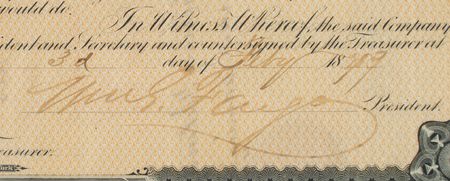 would do. In Witness Whereof, the said Company
ident and Secretary and countersigned by the Treasurer at
3d day of Feby 1879
Wm G. Fargo President.
easurer.
York